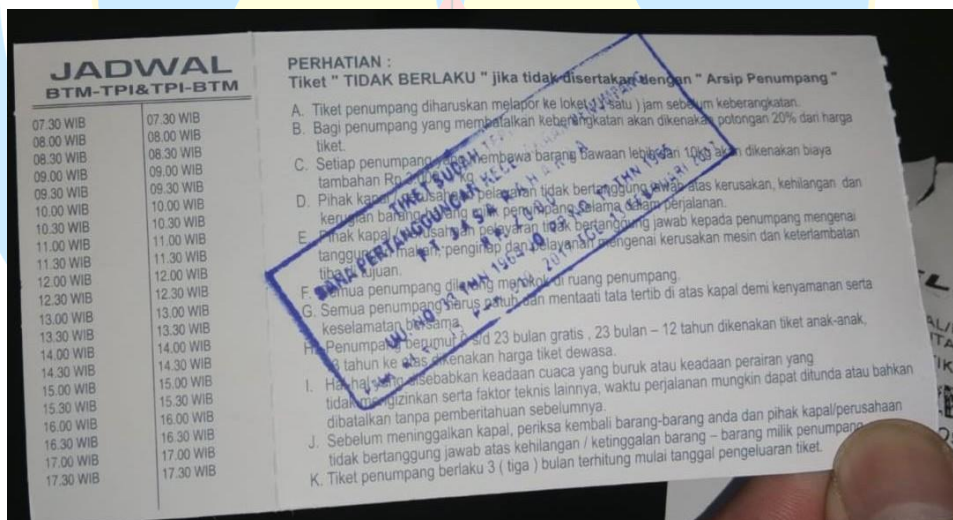 JADWAL
BTM-TPI&TPI-BTM
07.30 WIB 07.30 WIB
08.00 WIB 08.00 WIB
08.30 WIB 08.30 WIB
09.00 WIB 09.00 WIB
09.30 WIB 09.30 WIB
10.00 WIB 10.00 WIB
10.30 WIB 10.30 WIB
11.00 WIB 11.00 WIB
11.30 WIB 11.30 WIB
12.00 WIB 12.00 WIB
12.30 WIB 12.30 WIB
13.00 WIB 13.00 WIB
13.30 WIB 13.30 WIB
14.00 WIB 14.00 WIB
14.30 WIB 14.30 WIB
15.00 WIB 15.00 WIB
15.30 WIB 15.30 WIB
16.00 WIB 16.00 WIB
16.30 WIB 16.30 WIB
17.00 WIB 17.00 WIB
17.30 WIB 17.30 WIB
PERHATIAN :
Tiket " TIDAK BERLAKU " jika tidak disertakan dengan " Arsip Penumpang "
A. Tiket penumpang diharuskan melapor ke loket satu ) jam sebelum keberangkatan.
B. Bagi penumpang yang membatalkan keberangkatan akan dikenakan potongan 20% dari harga
tiket.
C. Setiap penumpang yang membawa barang bawaan lebih dari 10kg akan dikenakan biaya
tambahan Rp kg
D. Pihak kapal / perusahaan pelayaran tidak bertanggung jawab atas kerusakan, kehilangan dan
kerugian barang-barang milik penumpang selama dalam perjalanan.
E. Pihak kapal / perusahaan pelayaran tidak bertanggung jawab kepada penumpang mengenai
tanggungan makan, penginap dan pelayanan mengenai kerusakan mesin dan keterlambatan
tiba tujuan.
F. Semua penumpang dilarang merokok di ruang penumpang.
G. Semua penumpang harus patuh dan mentaati tata tertib di atas kapal demi kenyamanan serta
keselamatan bersama.
H. Penumpang berumur s/d 23 bulan gratis , 23 bulan – 12 tahun dikenakan tiket anak-anak,
tahun ke atas dikenakan harga tiket dewasa.
I. Hal-hal yang disebabkan keadaan cuaca yang buruk atau keadaan perairan yang
tidak mengizinkan serta faktor teknis lainnya, waktu perjalanan mungkin dapat ditunda atau bahkan
dibatalkan tanpa pemberitahuan sebelumnya.
J. Sebelum meninggalkan kapal, periksa kembali barang-barang anda dan pihak kapal/perusahaan
tidak bertanggung jawab atas kehilangan / ketinggalan barang – barang milik penumpang
K. Tiket penumpang berlaku 3 ( tiga ) bulan terhitung mulai tanggal pengeluaran tiket.
TIKET SUDAH
DANA PERTANGGUNGAN KECELAKAAN PENUMPANG
PT JASA RAHARJA
UU. NO 33 THN 1964 JO PP NO THN 1965